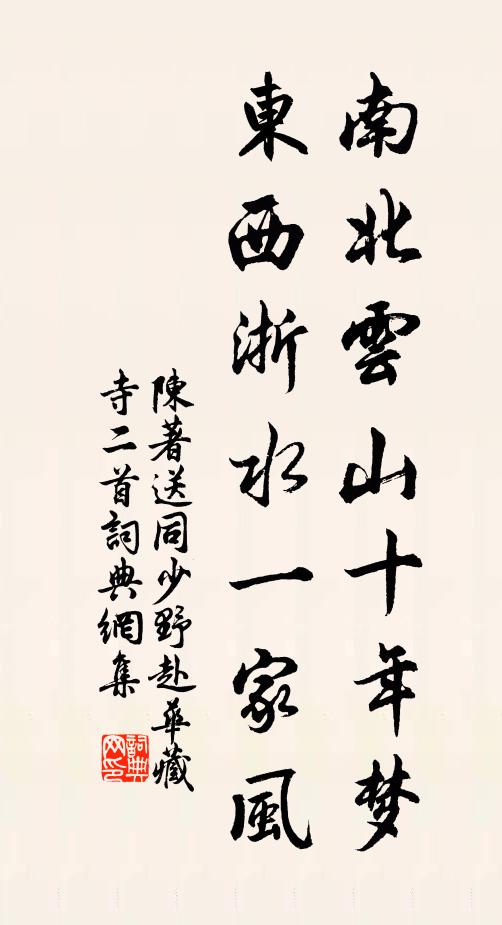 南北雲山十年梦
東西浙水一家風
陳著送同少野赴華藏
寺二首詞典網集
詞典
网印